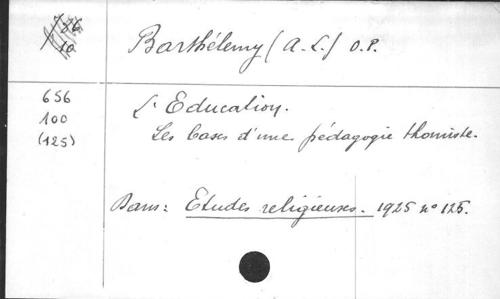 Barthélemy (A.-L.) O.P.
656
100
(125)
L'Education.
Les bases d'une pédagogie thomiste.
Dans: Etudes religieuses. 1925 n° 125.